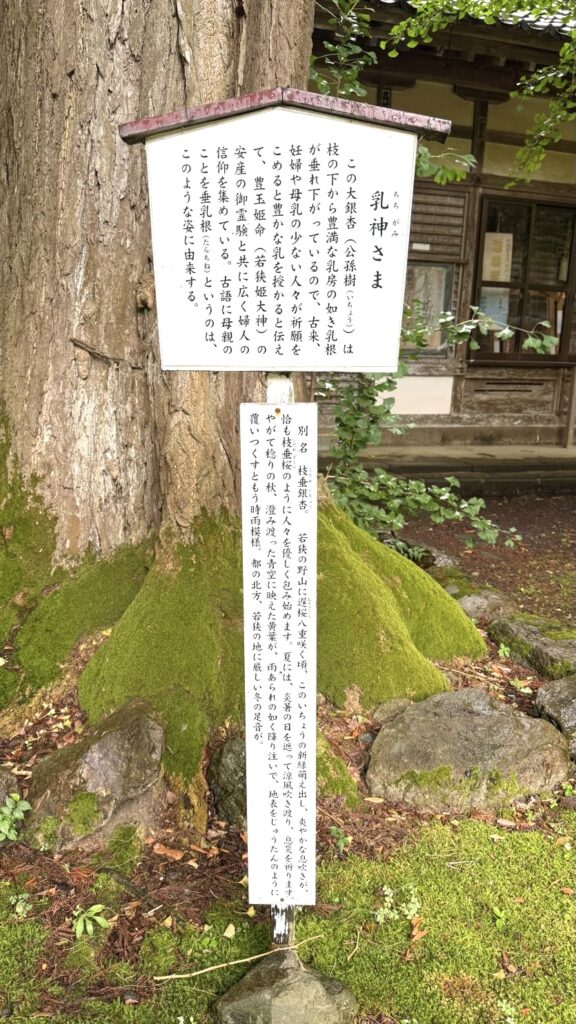 乳神さま
ちちがみ
この大銀杏（公孫樹（いちょう））は
枝の下から豊満な乳房の如き乳根
が垂れ下がっているので、古来、
妊婦や母乳の少ない人々が祈願を
こめると豊かな乳を授かると伝え
て、豊玉姫命（若狭姫大神）の
安産の御霊験と共に広く婦人の
信仰を集めている。古語に母親の
ことを垂乳根（たらちね）というのは、
このような姿に由来する。
別名　枝垂銀杏。　若狭の野山に遅桜八重咲く頃、このいちょうの新緑萌え出し、爽やかな息吹きが、
恰も枝垂桜のように人々を優しく包み始めます。夏には、炎暑の日を遮って涼風吹き渡り、息災を祈ります
やがて稔りの秋、澄み渡った青空に映えた黄葉が、雨あられの如く降り注いで、地表をじゅうたんのように
覆いつくすともう時雨模様。都の北方、若狭の地に厳しい冬の足音が。